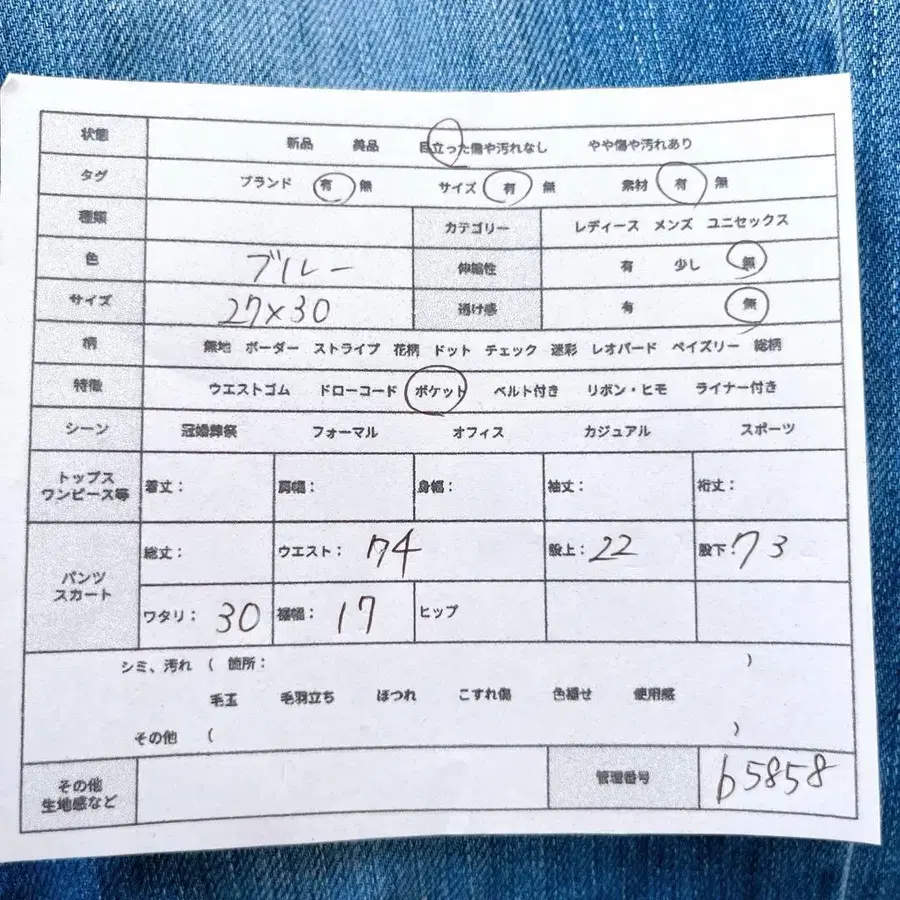 状態 新品 美品 目立った傷や汚れなし やや傷や汚れあり
タグ ブランド 有 無 サイズ 有 無 素材 有 無
種類 カテゴリー レディース メンズ ユニセックス
色 ブルー 伸縮性 有 少し 無
サイズ 27×30 透け感 有 無
柄 無地 ボーダー ストライプ 花柄 ドット チェック 迷彩 レオパード ペイズリー 総柄
特徴 ウエストゴム ドローコード ポケット ベルト付き リボン・ヒモ ライナー付き
シーン 冠婚葬祭 フォーマル オフィス カジュアル スポーツ
トップス
ワンピース等 着丈: 肩幅: 身幅: 袖丈: 裄丈:
パンツ
スカート 総丈: ウエスト: 74 股上: 22 股下: 73
ワタリ: 30 裾幅: 17 ヒップ
シミ、汚れ ( 箇所: )
毛玉 毛羽立ち ほつれ こすれ傷 色褪せ 使用感
その他 ( )
その他
生地感など 管理番号 b5858